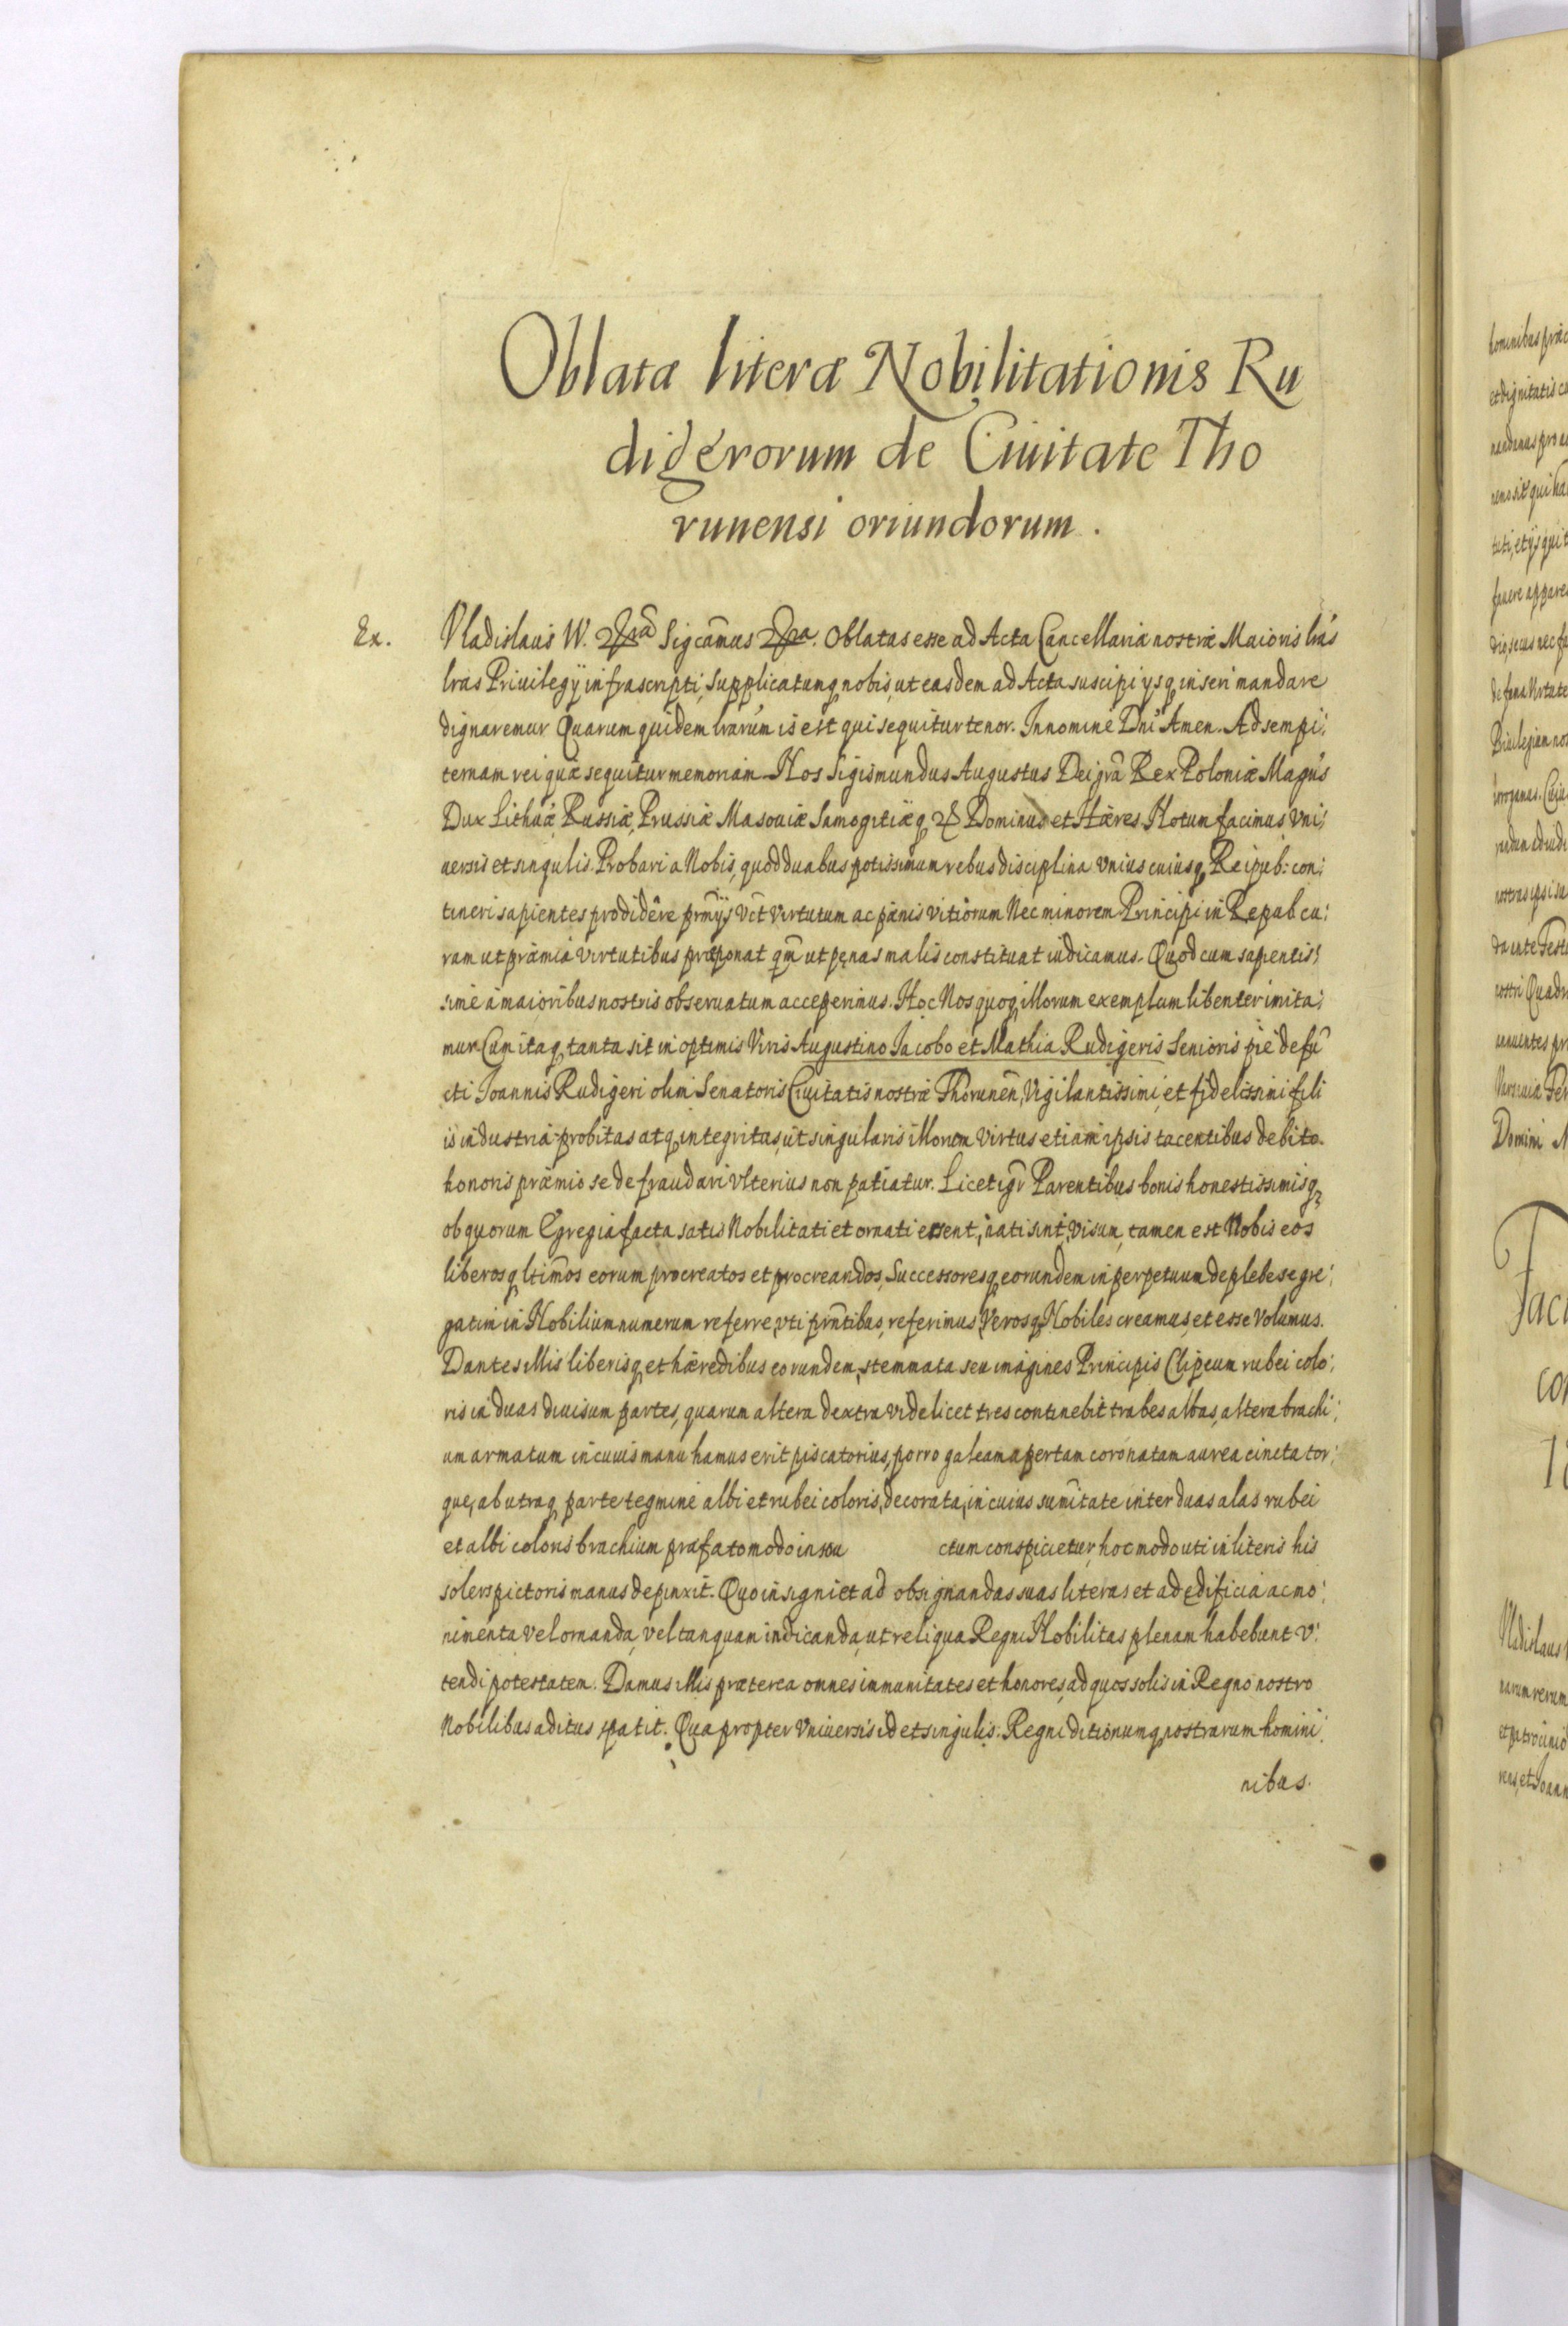 Oblata literæ Nobilitationis Ru
digerorum de Ciuitate Tho
runensi oriundorum.
Ex.
Vladislaus W. Sigcamus Oblatas esse ad Acta Cancellariæ nostræ Maioris lras
lras Priuilegÿ infrascripti, supplicatumq nobis, ut easdem ad Acta suscipi ysq inseri mandare
dignaremur Quarum quidem lrarum is est qui sequitur tenor. In nomine Dni Amen. Ad sempi:
ternam rei quæ sequitur memoriam Nos Sigismundus Augustus Dei gra Rex Poloniæ Magnus
Dux Lithuæ, Russiæ, Prussiæ Masouiæ Samogitiæq Dominus et Hæres. Notum facimus Vni:
uersis et singulis. Probari a Nobis, quod duabus potissimum rebus disciplina vnius cuiusq Reipub: con:
tineri sapientes prodidêre prmÿs Vct Virtutum ac pænis vitiorum Nec minorem Principi in Repub cu:
ram ut præmia virtutibus præponat qm ut pęnas malis constituat iudicamus. Quod cum sapientis:
sime a maioribus nostris obseruatum acceperimus. Hoc Nos quoq illorum exemplum libenter imita:
mur. Cum itaq tanta sit in optimis Viris Augustino Iacobo et Mathia Rudigeris Senioris pie defu
cti Ioannis Rudigeri olim Senatoris Ciuitatis nostræ Thorunen, Vigilantissimi, et fidelissimi fili
is industria probitas atq integritas, ut singularis illorum virtus etiam ipsis tacentibus debito
honoris præmio se defraudari vlterius non patiatur. Licet igr Parentibus bonis honestissimisq
ob quorum Egregia facta satis Nobilitati et ornati essent, nati sint, visum, tamen est Nobis eos
liberosq ltimos eorum procreatos et procreandos, Successoresq eorundem in perpetuum de plebe segre:
gatim in Nobilium numerum referre, vti prntibus, referimus, Verosq Nobiles creamus, et esse volumus.
Dantes illis liberisq et hæredibus eorundem, stemmata seu imagines Principis Clipeum rubei colo:
ris in duas diuisum partes, quarum altera dextra videlicet tres continebit trabes albas, altera brachi:
um armatum in cuius manu hamus erit piscatorius, porro galeam apertam coronatam aurea cincta tor:
que, ab utraq parte tegmine albi et rubei coloris, decorata, in cuius sumitate inter duas alas rubei
et albi coloris brachium præfato modo in ctum conspicietur, hoc modo uti in literis his
solers pictoris manus depinxit. Quo insigni et ad obsignandas suas literas et ad ędificia ac mo:
nimenta vel ornanda, vel tanquam indicanda, ut reliqua Regni Nobilitas plenam habebunt v:
tendi potestatem. Damus illis præterea omnes immunitates et honores, ad quos solis in Regno nostro
Nobilibus aditus patit. Qua propter Vniuersis id et singulis: Regni ditionumq nostrarum homini:
nibus.